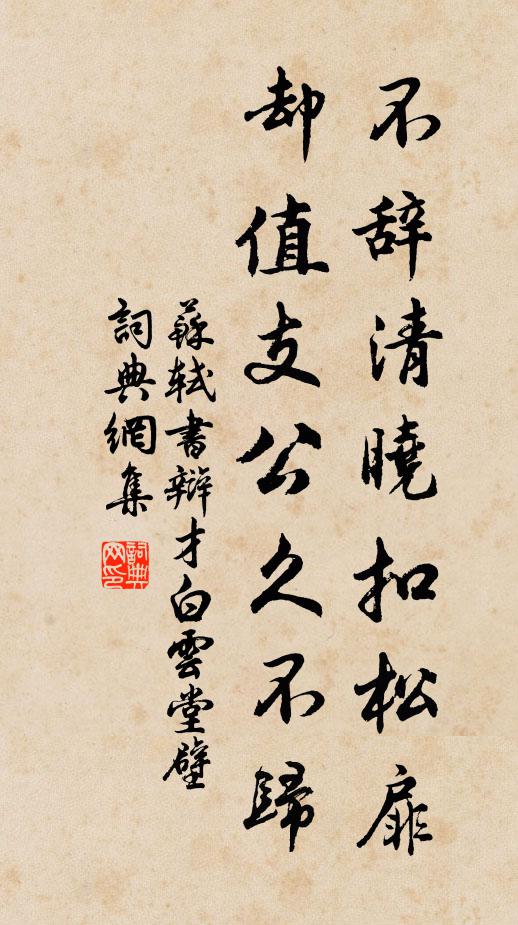 不辞清曉扣松扉
却值支公久不歸
蘇軾書辯才白雲堂壁
詞典網集
詞典网印